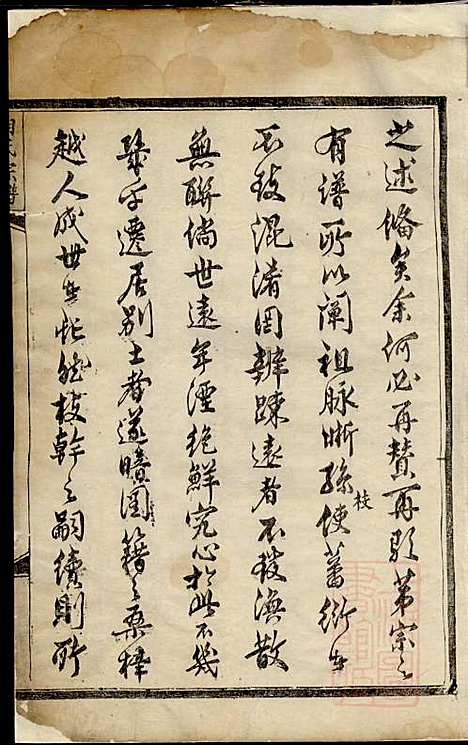 之述備矣余何必再贊再引第宗之
有譜所以闡祖脉晰孫枝使蕃衍者
不致混淆罔辨踈遠者不致渙散
無聯倘世遠年湮絕鮮究心於此不幾
乎遷居别土者遂曠圖籍之桑梓
越人成世無忙然枝幹之嗣續則所